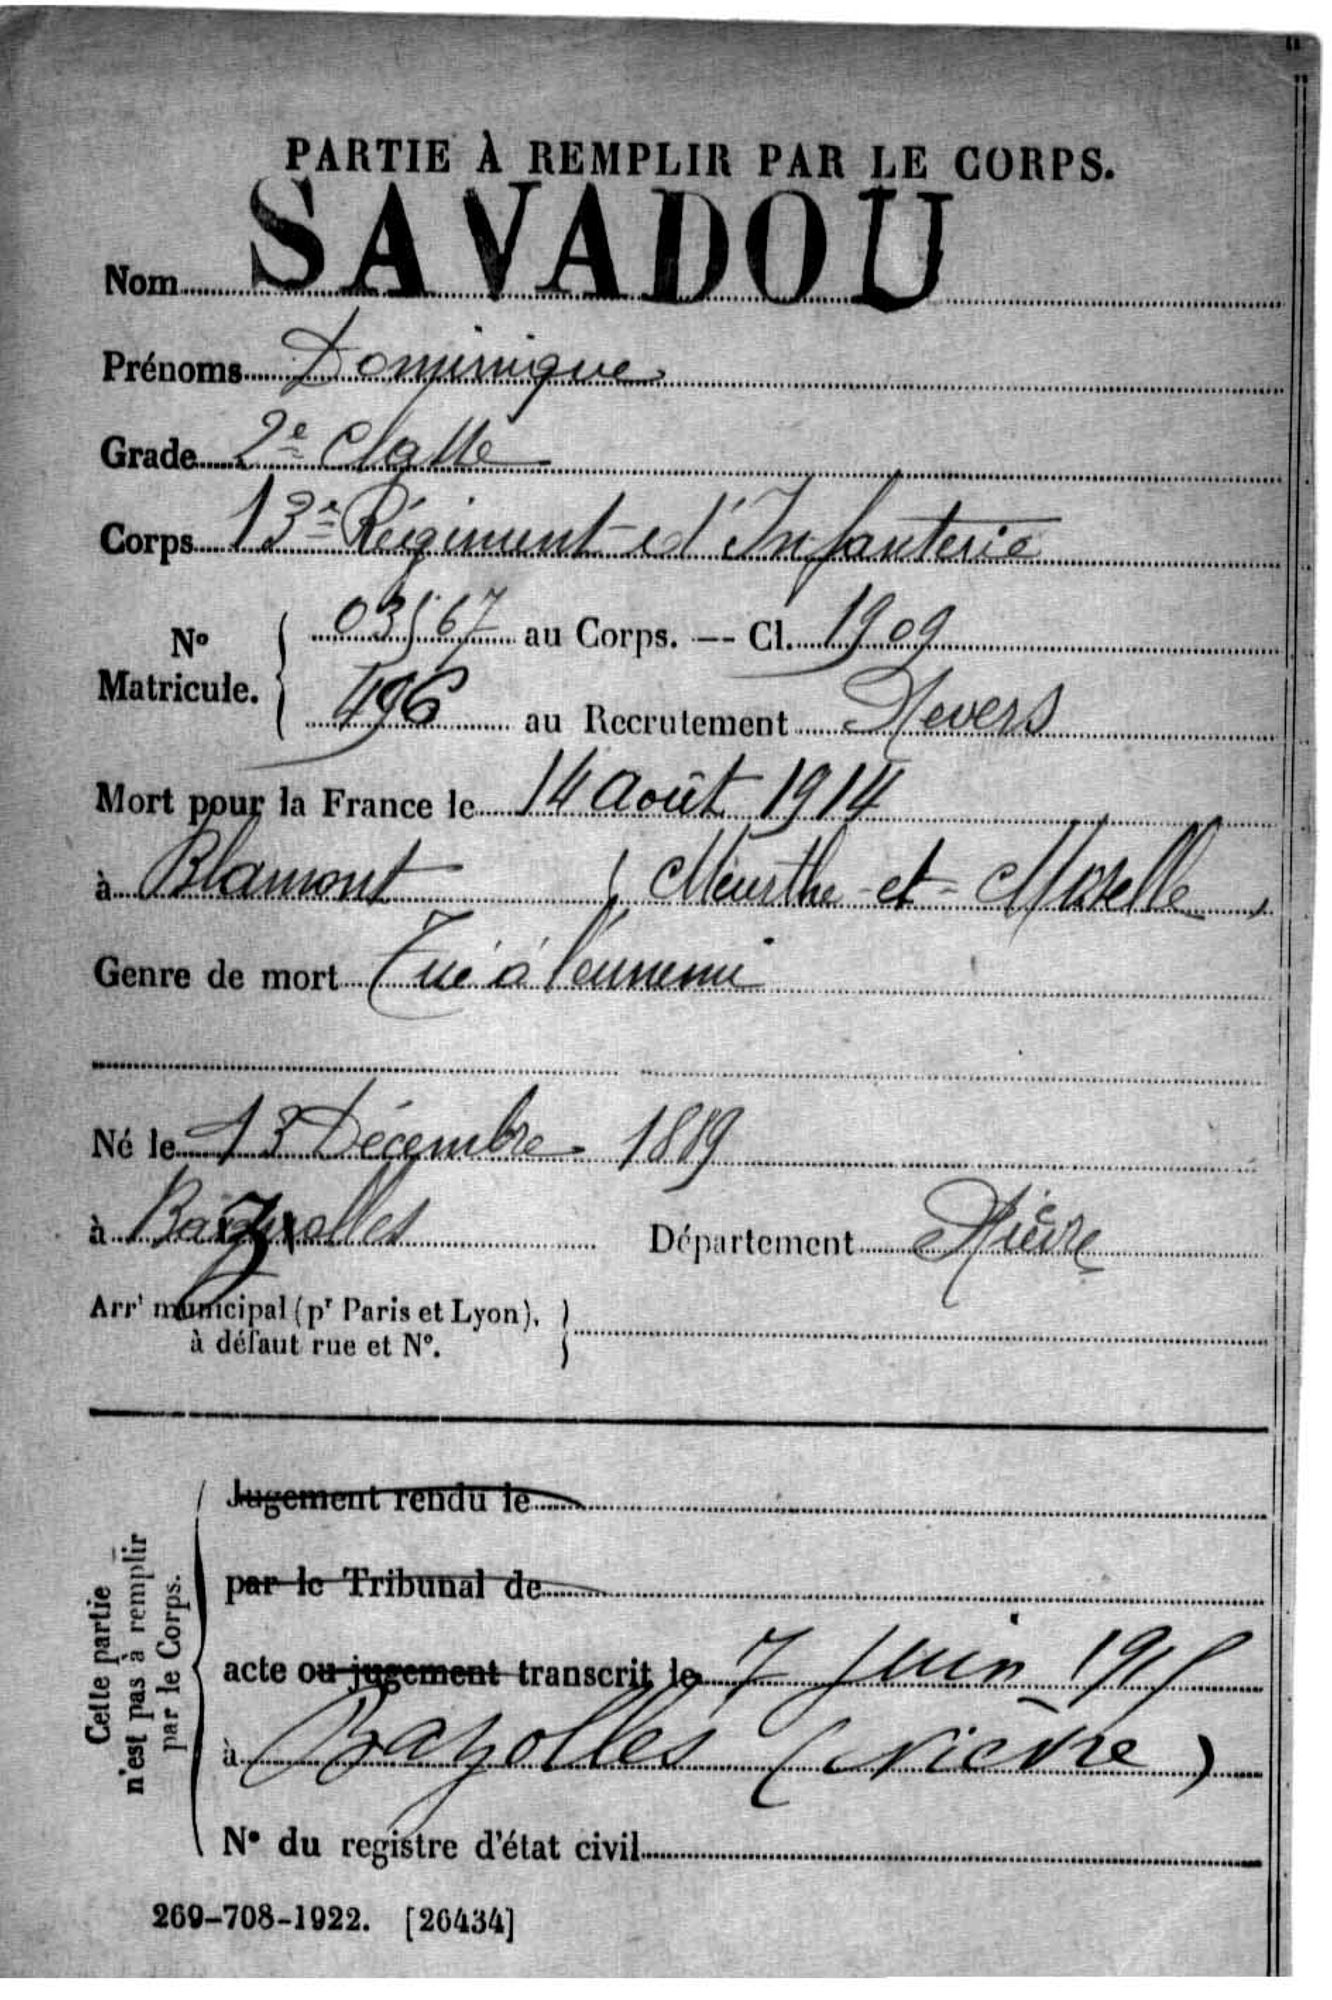 PARTIE À REMPLIR PAR LE CORPS.
Nom SAVADOU
Prénoms Dominique
Grade 2e Classe
Corps 13e Régiment d'Infanterie
No Matricule. { 03567 au Corps. — Cl. 1909
496 au Recrutement Nevers
Mort pour la France le 14 Août 1914
à Blamont ( Meurthe-et-Moselle )
Genre de mort Tué à l'ennemi
Né le 13 Décembre 1889
à Bazolles Département Nièvre
Arrt municipal (pr Paris et Lyon), }
à défaut rue et No.
Cette partie
n'est pas à remplir
par le Corps.
Jugement rendu le
par le Tribunal de
acte ou jugement transcrit le 7 Juin 1915
à Bazolles (Nièvre)
No du registre d'état civil
269-708-1922. [26434]